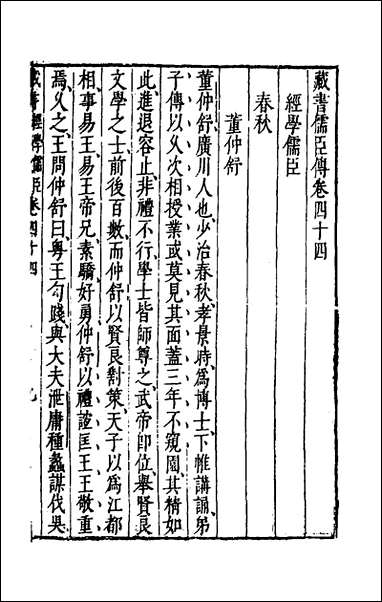 藏書儒臣傳卷四十四
經學儒臣
春秋
董仲舒
董仲舒廣川人也少治春秋孝景時爲博士下帷講誦弟
子傳以久次相授業或莫見其面蓋三年不窺園其精如
此進退容止非禮不行學士皆師尊之武帝即位舉賢良
文學之士前後百數而仲舒以賢良對策天子以爲江都
相事易王易王帝兄素驕好勇仲舒以禮誼匡王王敬重
焉久之王問仲舒曰粤王勾踐與大夫泄庸種蠡謀伐吳
藏書經學儒臣卷四十四